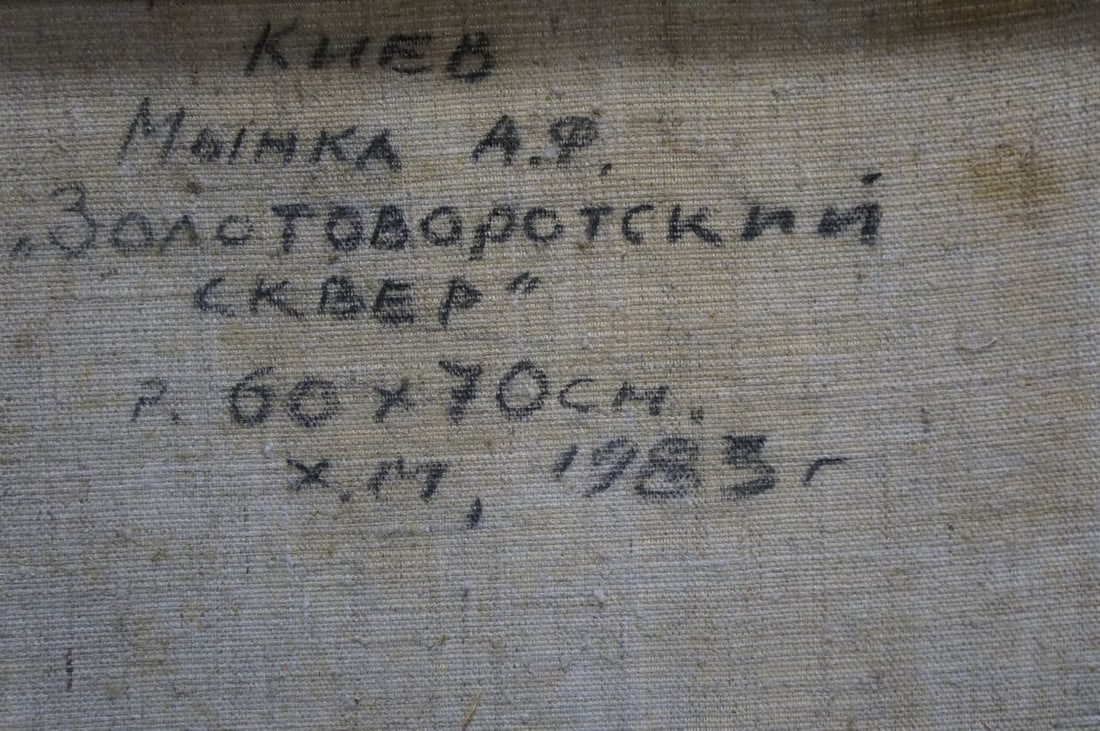 КИЕВ
МЫНКА А.Ф.
„ЗОЛОТОВОРОТСКИЙ
СКВЕР"
р. 60 х 70 см.
х.м, 1983 г